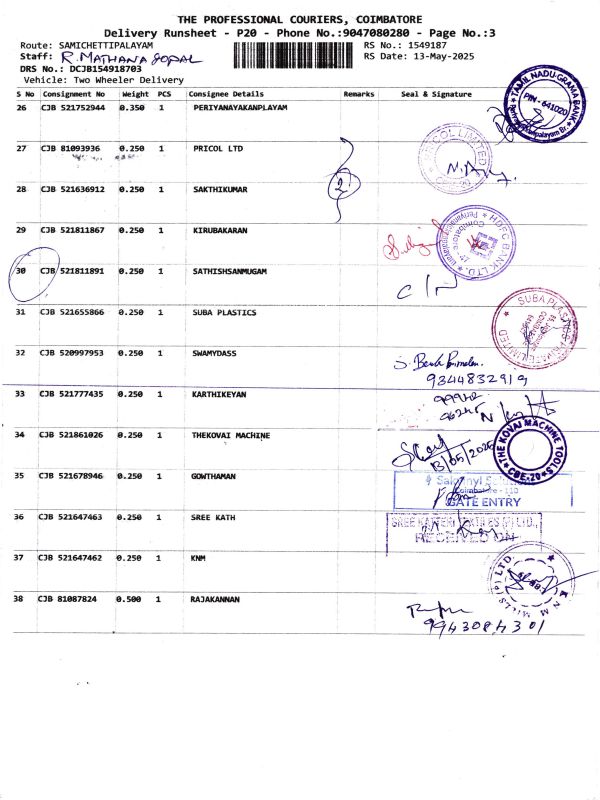 THE PROFESSIONAL COURIERS, COIMBATORE
Delivery Runsheet - P20 - Phone No.:9047080280 - Page No.:3
Route: SAMICHETTIPALAYAM RS No.: 1549187
Staff: R. MATHANA GOPAL RS Date: 13-May-2025
DRS No.: DCJB154918703
Vehicle: Two Wheeler Delivery
S No Consignment No Weight PCS Consignee Details Remarks Seal & Signature
26 CJB 521752944 0.350 1 PERIYANAYAKANPLAYAM
TAMIL NADU GRAMA BANK
PIN - 641020
27 CJB 81093936 0.250 1 PRICOL LTD
PRICOL LIMITED
28 CJB 521636912 0.250 1 SAKTHIKUMAR
2
29 CJB 521811867 0.250 1 KIRUBAKARAN
HDFC BANK LTD.
Coimbatore
30 CJB 521811891 0.250 1 SATHISHSANMUGAM
31 CJB 521655866 0.250 1 SUBA PLASTICS
SUBA PLASTICS PRIVATE LIMITED
32 CJB 520997953 0.250 1 SWAMYDASS
9344832919
33 CJB 521777435 0.250 1 KARTHIKEYAN
34 CJB 521861026 0.250 1 THEKOVAI MACHINE
THE KOVAI MACHINE TOOLS
CBE-20
13/05/2025
35 CJB 521678946 0.250 1 GOWTHAMAN
Coimbatore - 110
GATE ENTRY
36 CJB 521647463 0.250 1 SREE KATH
SREE KAVERI TEXTILES (P) LTD.,
RECEIVED ON
37 CJB 521647462 0.250 1 KNM
K N M MILLS (P) LTD.
38 CJB 81087824 0.500 1 RAJAKANNAN
9943084301